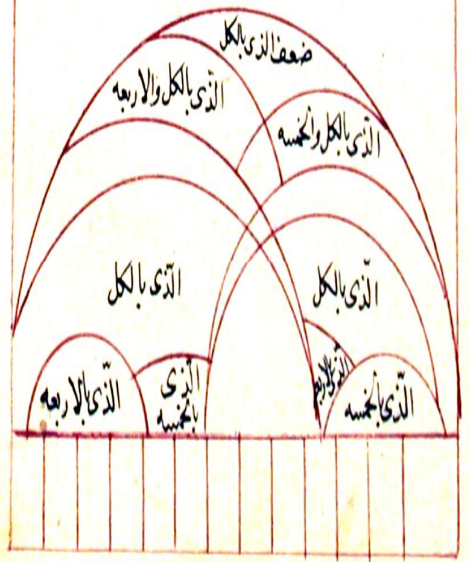 ضعف الذى بالكل
الذى بالكل والاربعه
الذى بالكل والخمسه
الذى بالكل
الذى بالكل
الذى بالاربعه
الذى
بالخمسه
الذى بالاربعه
الذى بالخمسه